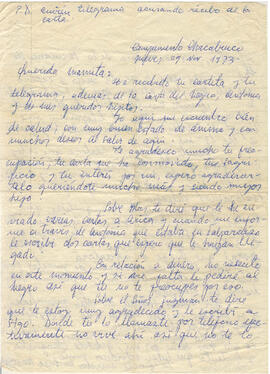 P.D. envien telegrama acusando recibo de la
carta.
Campamento Chacabuco
Jueves 29 Nov 1973
Querido mamita:
He recibido tu cartita y tu
telegrama, además de la carta del Negro, Antonia
y los sus queridos hijitos.
Yo aquí me encuentro bien
de salud, con muy buen estado de animo y con
muchos deseos de salir de aquí.
Te agradezco mucho tu pre-
ocupación, tu carta que ha conmovido, tu sacri-
ficio y tu interés por mi, espero agradecer-
telo queriendote mucho más y siendo mejor
hijo.
Sobre Blas te diré que le he en-
viado varias cartas a Arica y cuando me im-
puse a traves de Antonia que estaba en Valparaíso
le escribí dos cartas que espero que le hayan lle-
gado.
En relación a dinero, no necesito
en este momento y si me falta le pediré al
Negro así que tu no te preocupes por eso.
Sobre el tío te diré
que le estoy muy agradecido y le escribí a
Stgo. Donde tu lo llamaste por teléfono efec-
tivamente no vive ahí así que no te lo